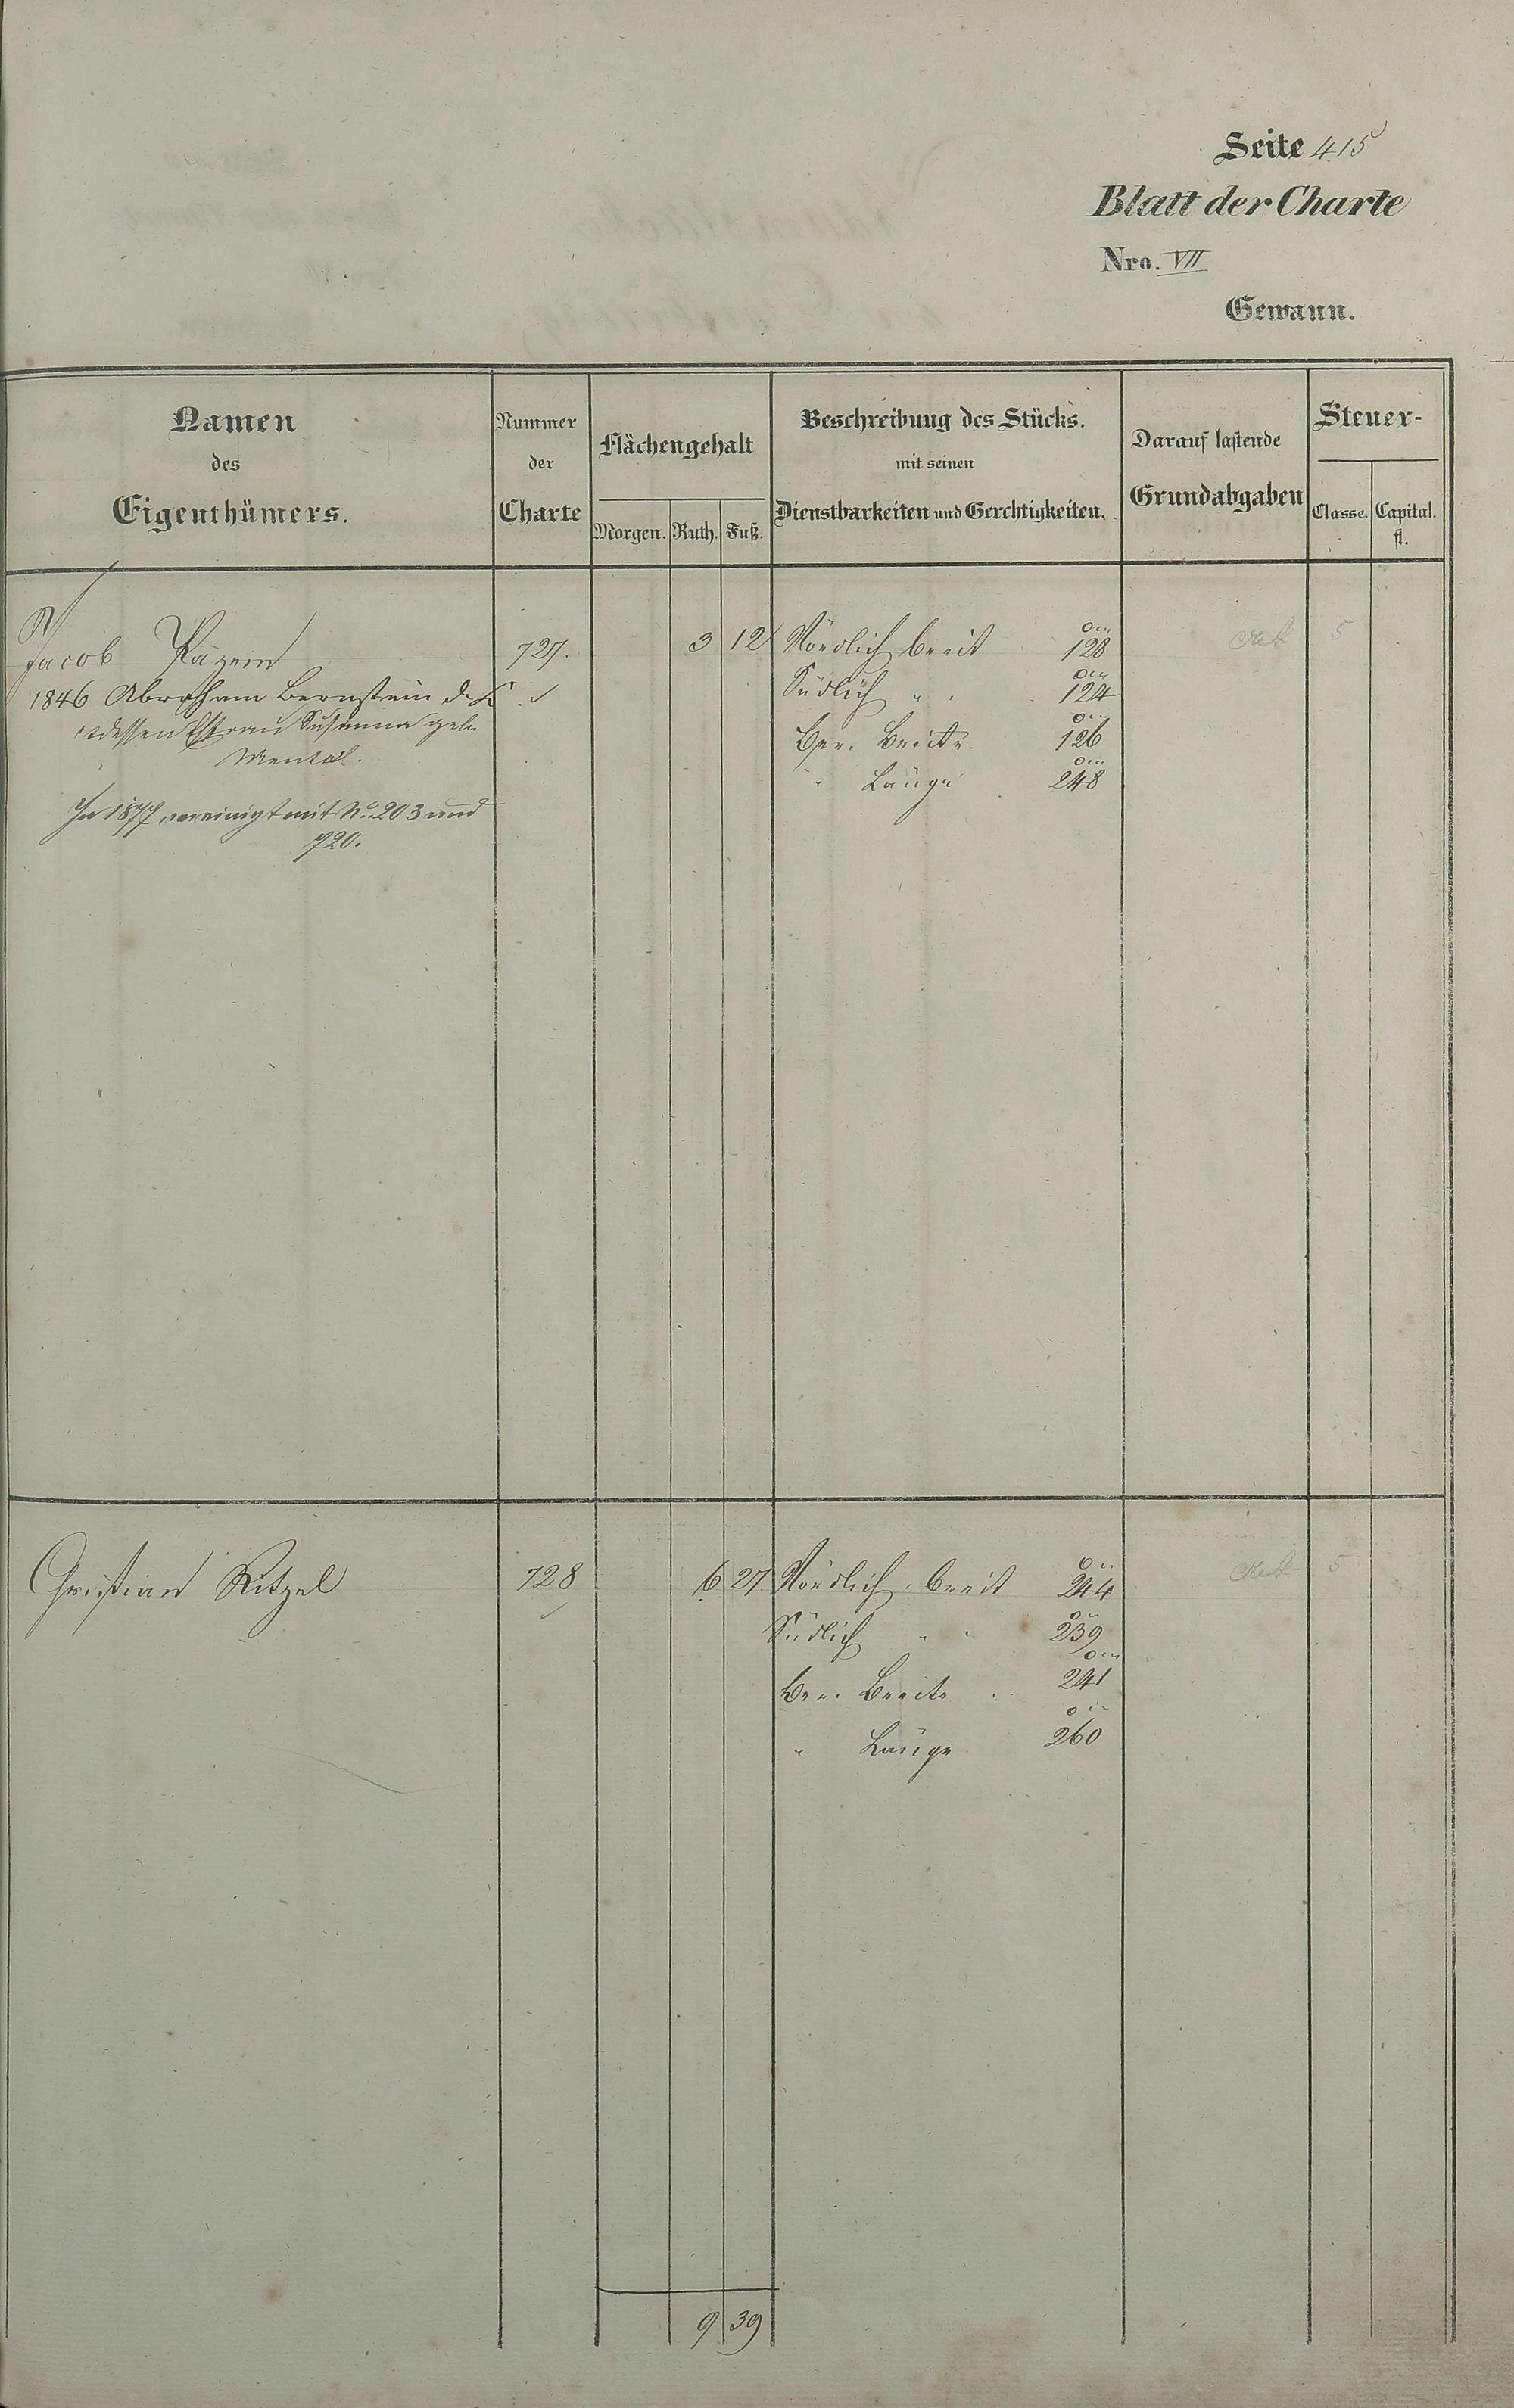 Seite 415
Blatt der Charte
Nro. VII
Gewann.
Namen
des
Eigenthümers.
Nummer
der
Charte
Flächengehalt
Morgen. Ruth. Fuß.
Beschreibung des Stücks.
mit seinen
Dienstbarkeiten und Gerchtigkeiten.
Darauf lastende
Grundabgaben
Steuer-
Classe. Capital.
fl.
Jacob 727. 3 12 Nördlich breit 128 5
1846 Abraham Bernstein Südlich " " 124
dessen Ehfrau Susanna geb. Ber. Breite 126
Mentel. " Länge 248
In 1877 vereinigt mit No. 203 und
720.
Christian Ritzel 728 6 27 Nördlich breit 244 5
Südlich " " 239
Ber. Breite 241
" Länge 260
9 39